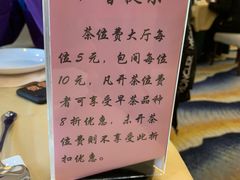 茶位费大厅每
位5元，包间每位
10元，凡开茶位费
者可享受早茶品种
8折优惠，未开茶
位费则不享受此折
扣优惠。